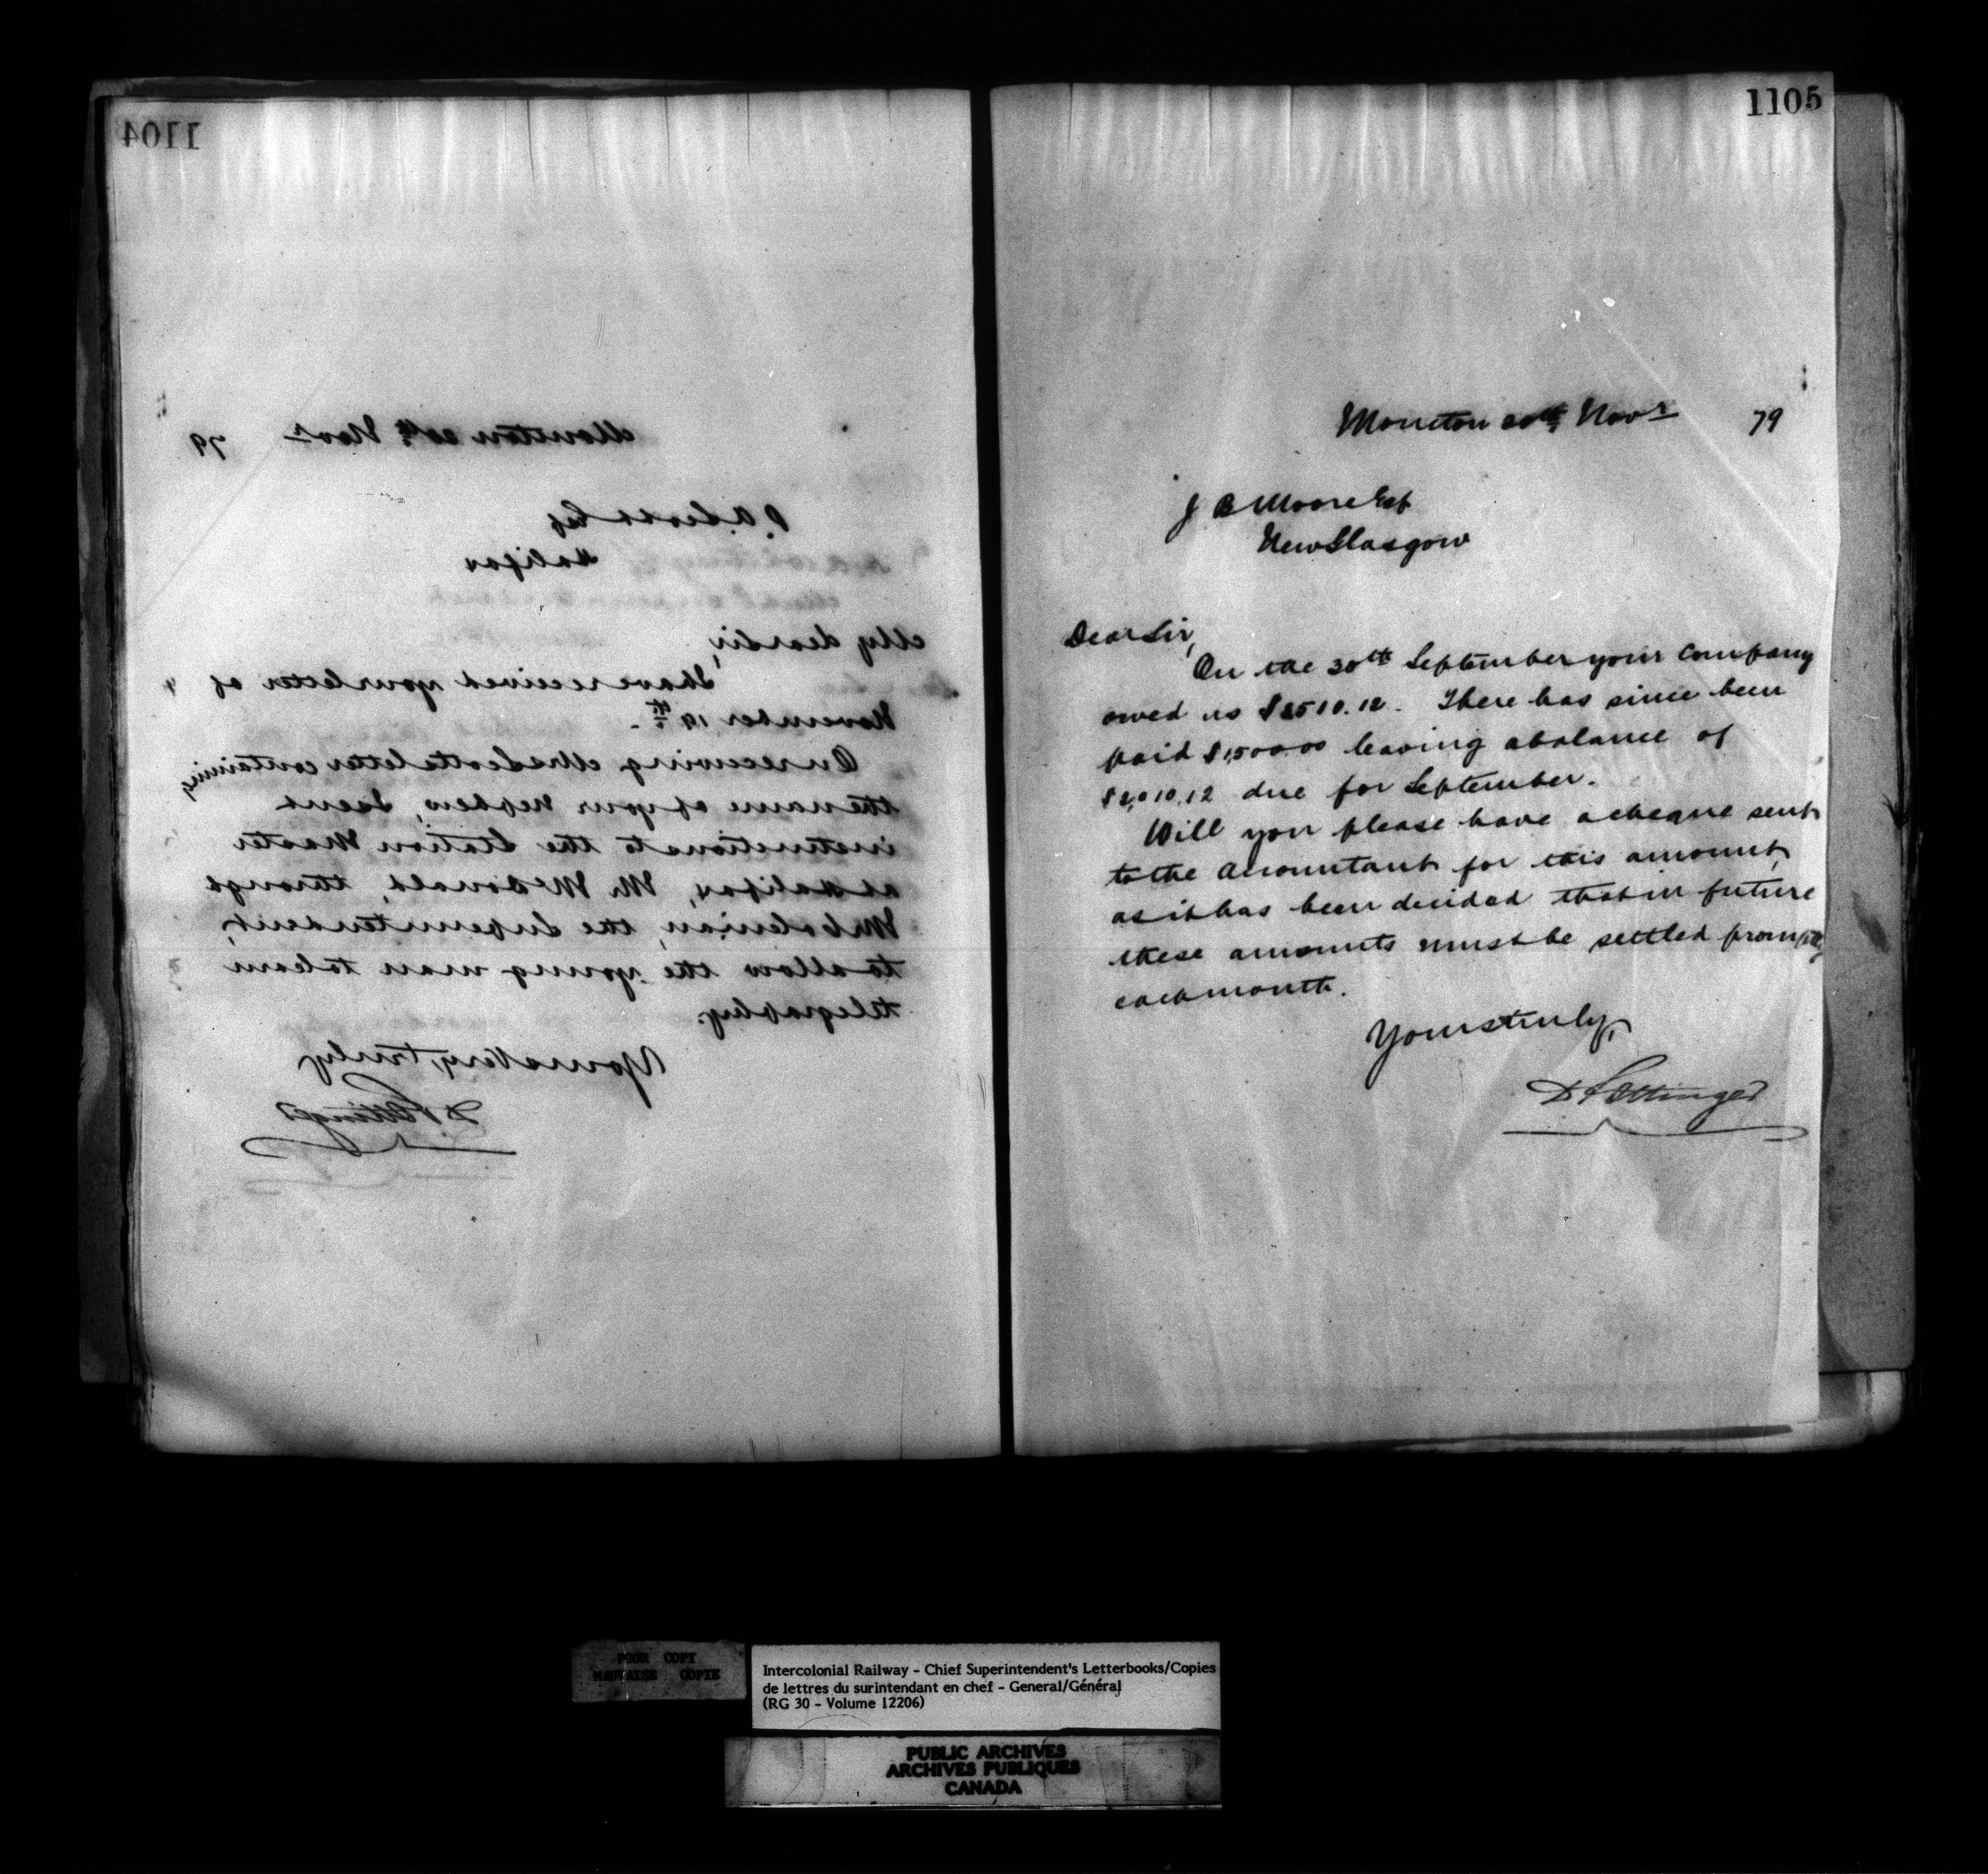 1104
Moncton 20th Novr 79
Halifax
My dear Sir,
I have received your letter of
November 19th.
On receiving Mr Scotts letter containing
the name of your nephew, I sent
instructions to the Station Master
at Halifax, Mr McDonald, through
the Superintendent,
to allow the young man to learn
telegraphy.
Yours Very truly
D Pottinger
1105
Moncton 20th Novr 79
J B Moore Esq
New Glasgow
Dear Sir,
On the 30th September your Company
owed us $3510.12. There has since been
paid $1,500.00 leaving a balance of
$2,010.12 due for September.
Will you please have a cheque sent
to the Accountant for this amount,
as it has been decided that in future
these amounts must be settled promptly
each month.
Yours truly,
D Pottinger
POOR COPY
MAUVAISE COPIE
Intercolonial Railway - Chief Superintendent's Letterbooks/Copies
de lettres du surintendant en chef - General/Général
(RG 30 - Volume 12206)
PUBLIC ARCHIVES
ARCHIVES PUBLIQUES
CANADA